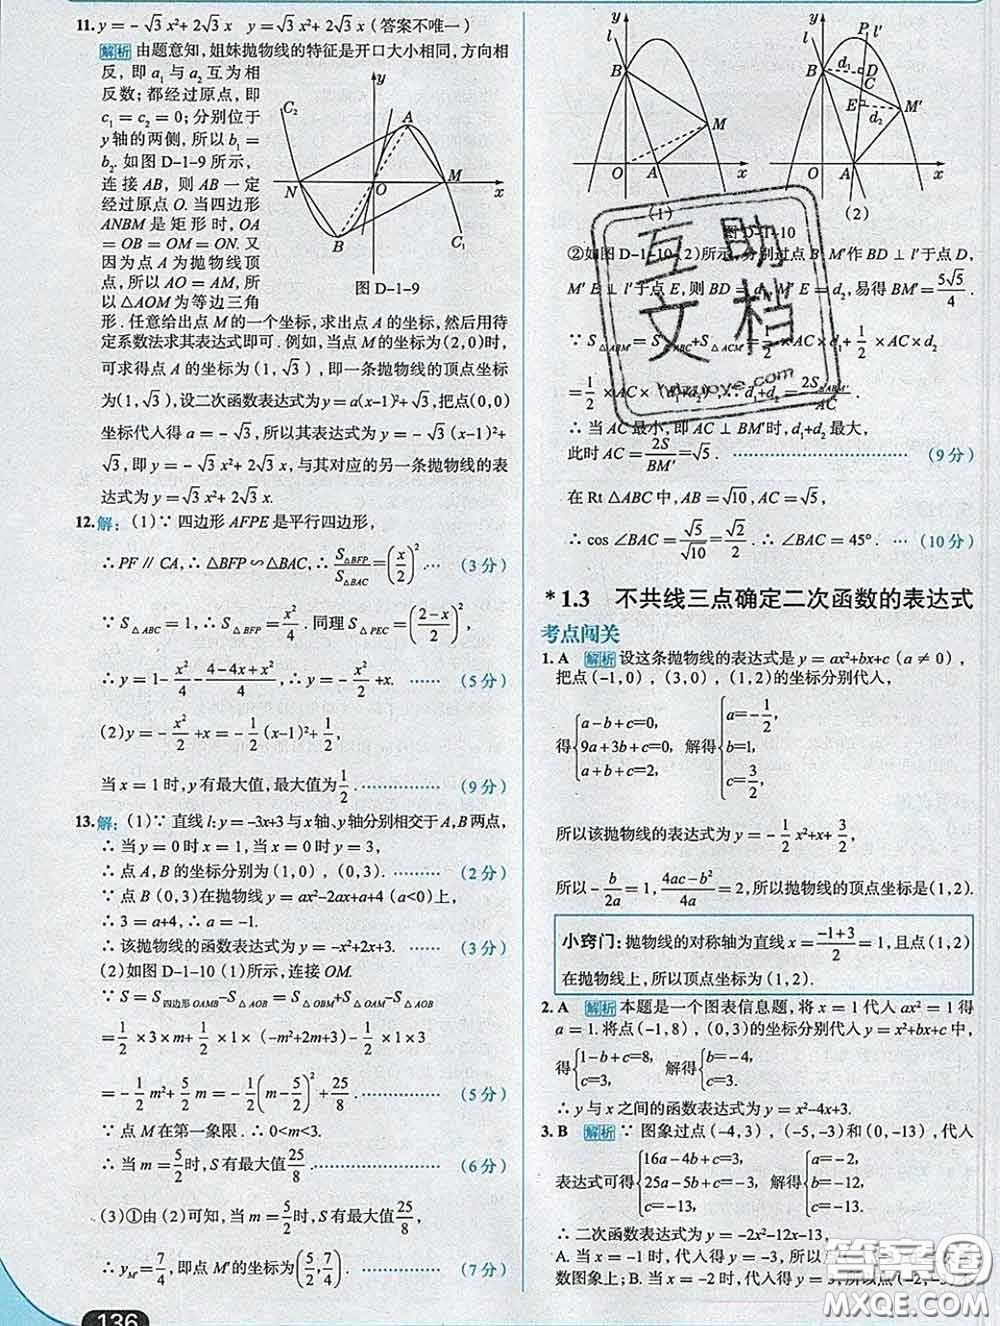 11. y=-√3 x²+2√3 x　y=√3 x²+2√3 x（答案不唯一）
解析 由题意知，姐妹抛物线的特征是开口大小相同，方向相
反，即 a₁ 与 a₂ 互为相
反数；都经过原点，即
c₁ = c₂ = 0；分别位于
y 轴的两侧，所以 b₁ =
b₂. 如图 D-1-9 所示，
连接 AB，则 AB 一定
经过原点 O. 当四边形
ANBM 是矩形时，OA
= OB = OM = ON. 又
因为点 A 为抛物线顶
点，所以 AO = AM，所
以 △AOM 为等边三角
C₂ y A N O M x B C₁
图 D-1-9
形. 任意给出点 M 的一个坐标，求出点 A 的坐标，然后用待
定系数法求其表达式即可. 例如，当点 M 的坐标为(2,0)时，
可求得点 A 的坐标为(1,√3)，即一条抛物线的顶点坐标
为(1,√3)，设二次函数表达式为 y=a(x-1)²+√3，把点(0,0)
坐标代入得 a=-√3，所以其表达式为 y=-√3 (x-1)²+
√3，即 y=-√3 x²+2√3 x，与其对应的另一条抛物线的表
达式为 y=√3 x²+2√3 x.
12. 解：(1)∵ 四边形 AFPE 是平行四边形，
∴ PF∥CA，∴ △BFP∽△BAC，∴ S△BFP/S△BAC=(x/2)². … (3分)
∵ S△ABC=1，∴ S△BFP=x²/4. 同理 S△PEC=((2-x)/2)²，
∴ y=1-x²/4-(4-4x+x²)/4，∴ y=-x²/2+x. …… (5分)
(2)y=-x²/2+x=-1/2(x-1)²+1/2，
当 x=1 时，y 有最大值，最大值为1/2. …… (9分)
13. 解：(1)∵ 直线 l：y=-3x+3 与 x 轴、y 轴分别相交于 A,B 两点，
∴ 当 y=0 时 x=1，当 x=0 时 y=3，
∴ 点 A,B 的坐标分别为(1,0)，(0,3). …… (2分)
∵ 点 B(0,3)在抛物线 y=ax²-2ax+a+4 (a<0)上，
∴ 3=a+4，∴ a=-1.
∴ 该抛物线的函数表达式为 y=-x²+2x+3. …… (3分)
(2)如图 D-1-10 (1)所示，连接 OM.
∵ S=S四边形OAMB-S△AOB=S△OBM+S△OAM-S△AOB
=1/2×3×m+1/2×1×(-m²+2m+3)-1/2×1×3
=-1/2m²+5/2m=-1/2(m-5/2)²+25/8. …… (5分)
∵ 点 M 在第一象限. ∴ 0<m<3.
∴ 当 m=5/2时，S 有最大值25/8. …… (6分)
(3)①由(2)可知，当 m=5/2时，S 有最大值25/8，
∴ yM′=7/4，即点 M′的坐标为(5/2,7/4). …… (7分)
136
y l B M O A x
(1)
y l P l′ B d₁ D C E M′ d₂ O A x
(2)
图 D-1-10
②如图 D-1-10 (2)所示，分别过点 B，M′作 BD⊥l′于点 D，
M′E⊥l′于点 E，则 BD=d₁，M′E=d₂，易得 BM′=5√5/4.
∵ S△ABM′=S△ABC+S△ACM′=1/2×AC×d₁+1/2×AC×d₂
=1/2×AC×(d₁+d₂)，∴ d₁+d₂=2S△ABM′/AC.
∴ 当 AC 最小，即 AC⊥BM′时，d₁+d₂最大，
此时 AC=2S/BM′=√5. …… (9分)
在 Rt△ABC 中，AB=√10，AC=√5，
∴ cos∠BAC=√5/√10=√2/2. ∴ ∠BAC=45°. … (10分)
*1.3　不共线三点确定二次函数的表达式
考点闯关
1. A　解析 设这条抛物线的表达式是 y=ax²+bx+c(a≠0)，
把点(-1,0)，(3,0)，(1,2)的坐标分别代入，
得{a-b+c=0, 9a+3b+c=0, a+b+c=2, 解得{a=-1/2, b=1, c=3/2,
所以该抛物线的表达式为 y=-1/2x²+x+3/2，
所以-b/2a=1，(4ac-b²)/4a=2，所以抛物线的顶点坐标是(1,2).
小窍门：抛物线的对称轴为直线 x=(-1+3)/2=1，且点(1,2)
在抛物线上，所以顶点坐标为(1,2).
2. A　解析 本题是一个图表信息题，将 x=1 代入 ax²=1 得
a=1. 将点(-1,8)，(0,3)的坐标分别代入 y=x²+bx+c 中，
得{1-b+c=8, c=3, 解得{b=-4, c=3.
∴ y 与 x 之间的函数表达式为 y=x²-4x+3.
3. B　解析 ∵ 图象过点(-4,3)，(-5,-3)和(0,-13)，代入
表达式可得{16a-4b+c=3, 25a-5b+c=-3, c=-13, 解得{a=-2, b=-12, c=-13.
∴ 二次函数表达式为 y=-2x²-12x-13，
A. 当 x=-1 时，代入得 y=-3，所以
数图象上；B. 当 x=-2 时，代入得 y=3，所以点(-2,-3)
互助文档
hdzuoye.com
答案圈
MXQE.COM